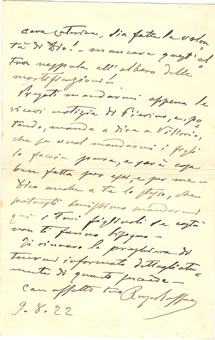 cara Caterina, sia fatta la volon
tà di Dio! - mancava quest'al
tra nappola all'albero delle
mortificazioni!
Pregoti mandarmi appena le
ricevi notizie di Pierino, e, po
tendo, manda a dire a Vittorio,
che se vuol mandarmi i figli
lo faccia pure, e sarà
ben fatta per essi, e per me -
Dico anche a te lo stesso, che
potresti benissimo mandarmi
qui i tuoi figliuoli se costì
non ti fanno bisogno -
Ti rinnovo la preghiera di
tenermi informato dettagliata
mente di quanto succede -
con affetto tuo
9.8.22